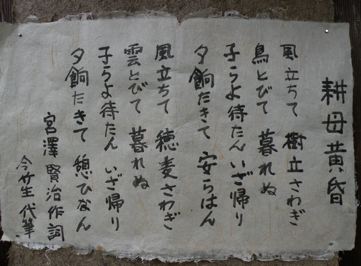 耕母黄昏
風立ちて 樹立さわぎ
鳥とびて 暮れぬ
子らよ待たん いざ帰り
夕餉たきて 安らはん
風立ちて 穂麦さわぎ
雲とびて 暮れぬ
子らよ待たん いざ帰り
夕餉たきて 憩ひなん
宮澤賢治作詞
代筆